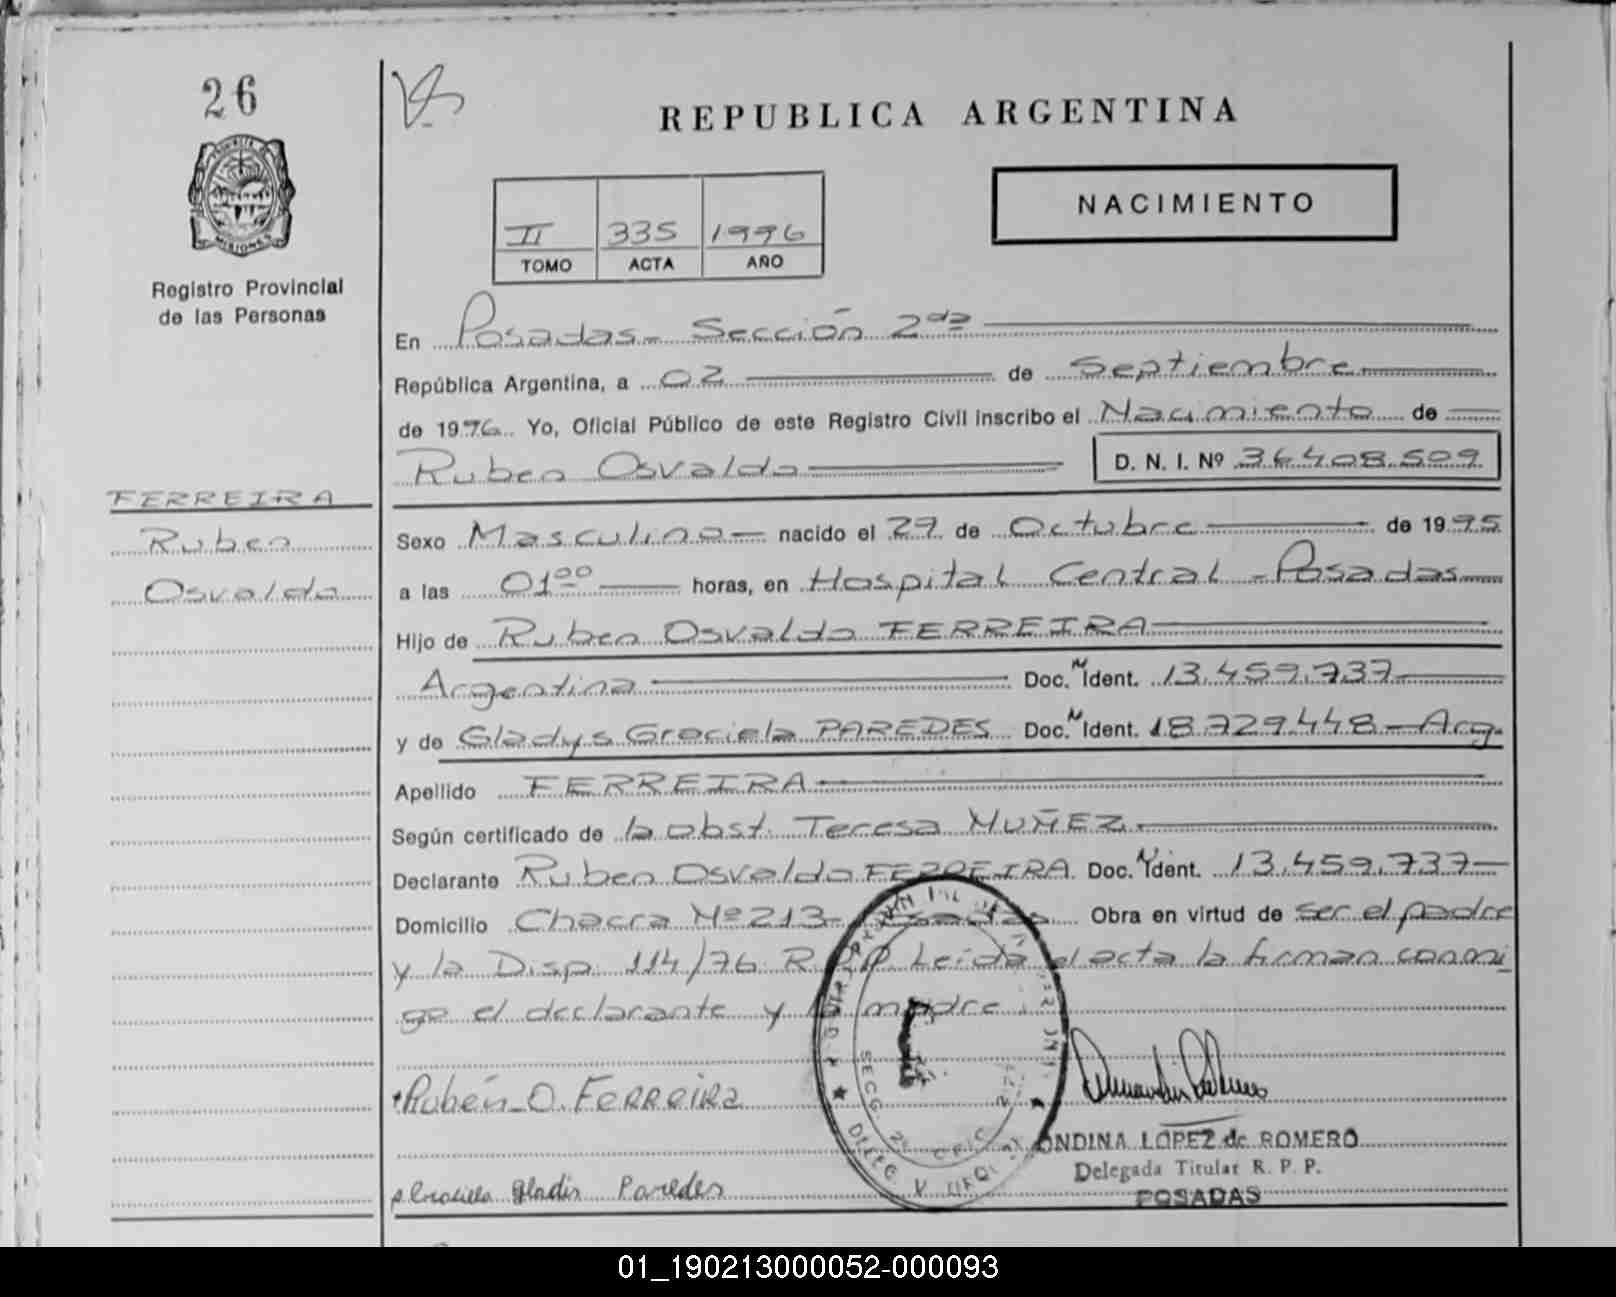 26
REPUBLICA ARGENTINA
PROVINCIA DE MISIONES
Registro Provincial
de las Personas
II 335 1996
TOMO ACTA AÑO
NACIMIENTO
En Posadas - Sección 2da
República Argentina, a 02 de Septiembre
de 1996 Yo, Oficial Público de este Registro Civil inscribo el Nacimiento de
Ruben Osvaldo D. N. I. Nº 36.408.509
FERREIRA
Ruben
Osvaldo
Sexo Masculino nacido el 29 de Octubre de 1995
a las 01 00 horas, en Hospital Central - Posadas
Hijo de Ruben Osvaldo FERREIRA
Argentina Doc. N Ident. 13.459.737
y de Gladys Graciela PAREDES Doc. N Ident. 18.729.448 - Arg.
Apellido FERREIRA
Según certificado de la obst. Teresa MUÑEZ
Declarante Ruben Osvaldo FERREIRA Doc. N Ident. 13.459.737
Domicilio Chacra Nº 213 - Posadas Obra en virtud de ser el padre
y la Disp. 114/76 R.P.P. Leída el acta la firman conmi
go el declarante y la madre.
Rubén O. FERREIRA
Graciela Gladis Paredes
SECC. 2ª
DELEG.
ONDINA LOPEZ de ROMERO
Delegada Titular R. P. P.
POSADAS
01_190213000052-000093